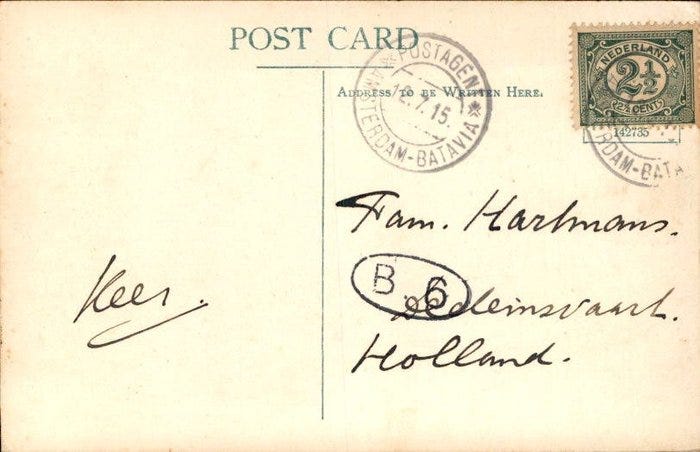 POST CARD
ADDRESS TO BE WRITTEN HERE.
POSTAGENT
AMSTERDAM-BATAVIA
12.7.15.
NEDERLAND
2½
2½ CENT
142735
RDAM-BATA
Fam. Hartmans.
B. 6
Dedemsvaart.
Holland.
Kees.